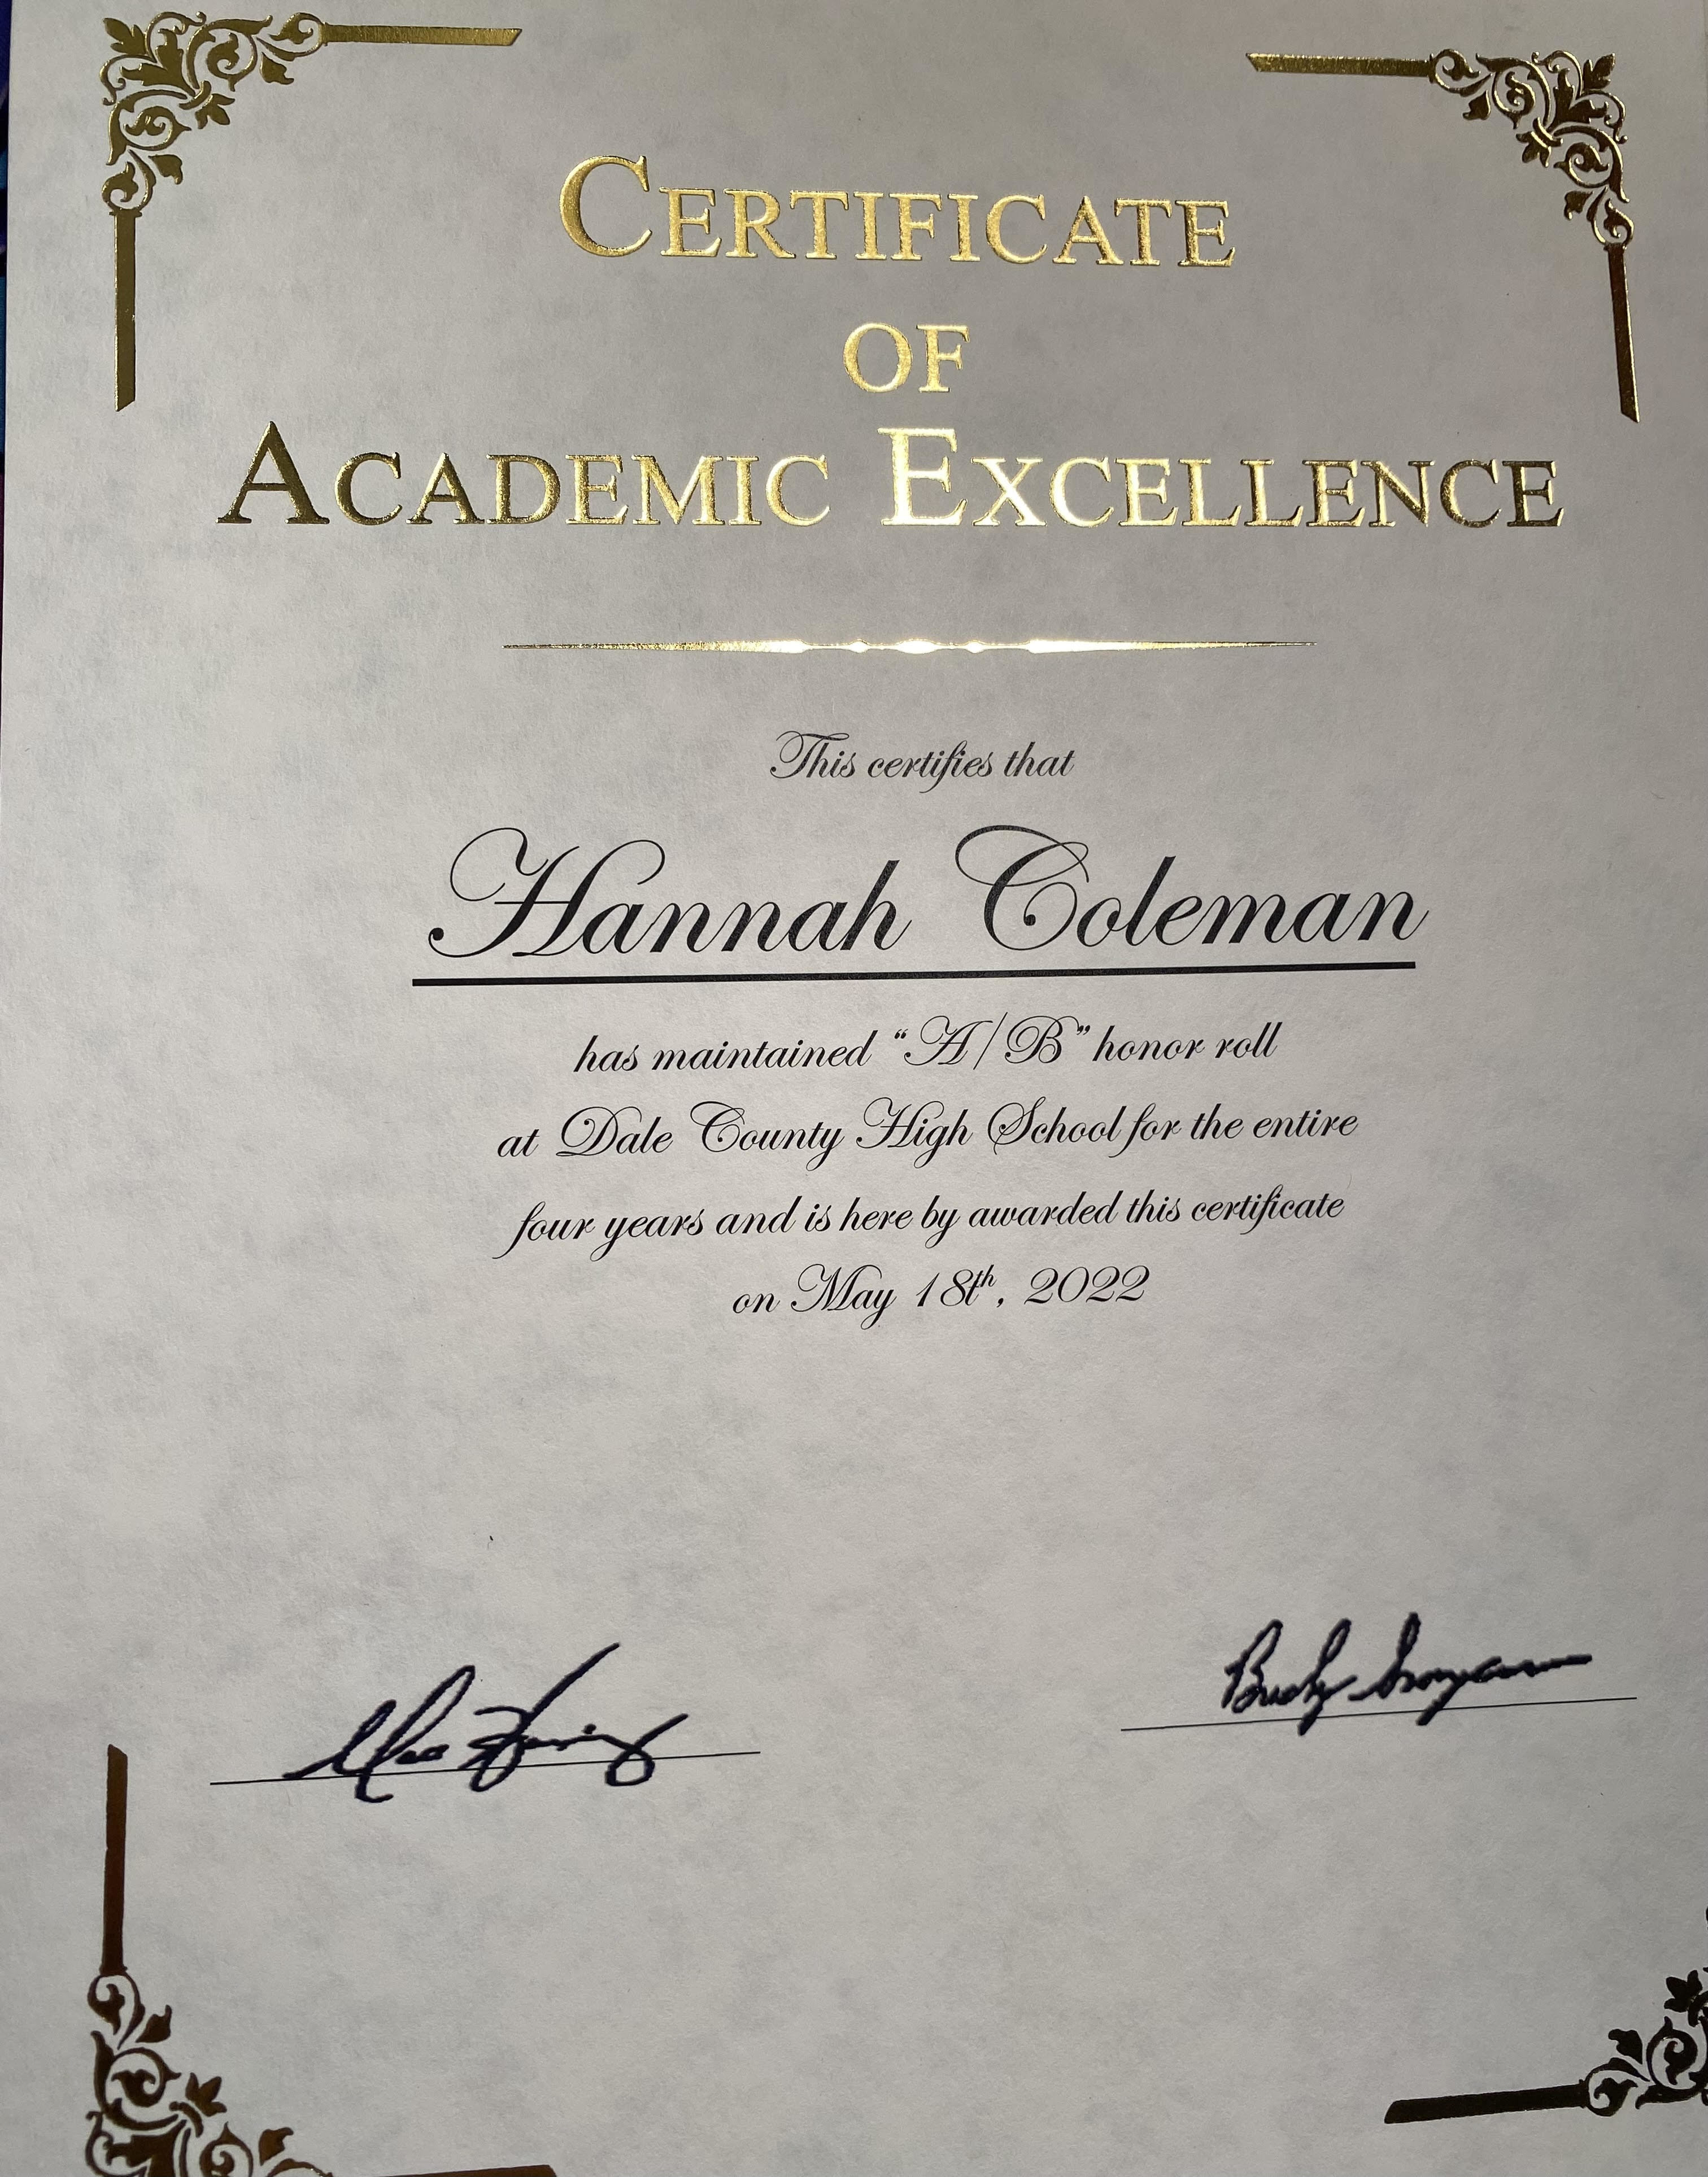 CERTIFICATE
OF
ACADEMIC EXCELLENCE
This certifies that
Hannah Coleman
has maintained “A/B” honor roll
at Dale County High School for the entire
four years and is here by awarded this certificate
on May 18th, 2022